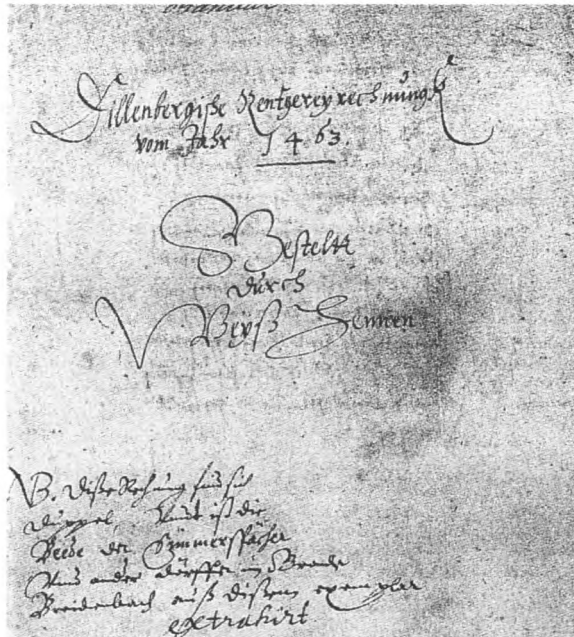 Dillenbergische Rentgereyrechnungk
vom Jahr 1463.
Besteltt
durch
Weyß Hennen
NB. Diße Rechnung
duppel. Undt ist die
Beede der Simmerspächer
Und ander dörffer im
Breidenbach auß dißem exemplar
extrahirt